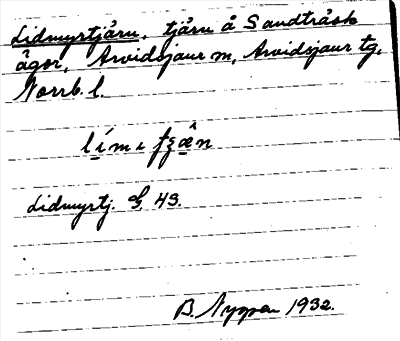 Lidmyrtjärn, tjärn å Sandträsk
ägor, Arvidsjaur m, Arvidsjaur tg,
Norrb. l.
Lidmyrtj. G 43.
B. Nyman 1932.